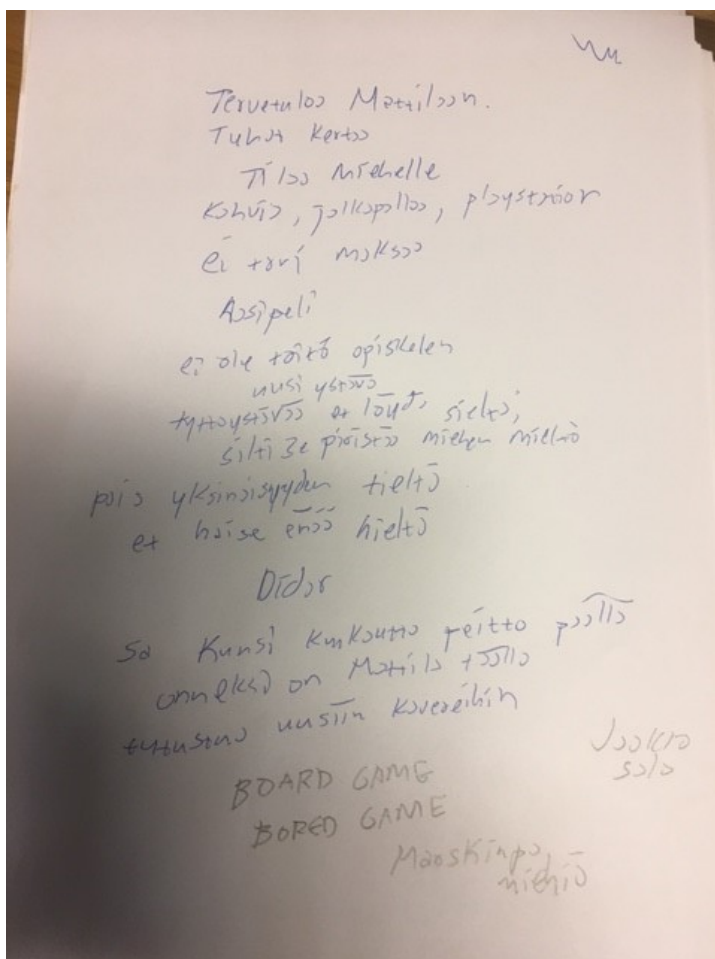 Tervetuloo Mattiloon.
Tuhat kertoo
Tiloo Miehelle
Kahvia, jalkapalloa, playstation
ei tarvi maksaa
Aasipeli
ei ole töitä opiskelen
uusi ystävä
tyttöystävää et löydä sieltä,
silti se piristää miehen mieltä
pois yksinäisyyden tieltä
et haise enää hieltä
Didar
50 peitto päällä
onneksi on Mattila täällä
tutustua uusiin kavereihin
Jaakko
solo
BOARD GAME
BORED GAME
miehiä